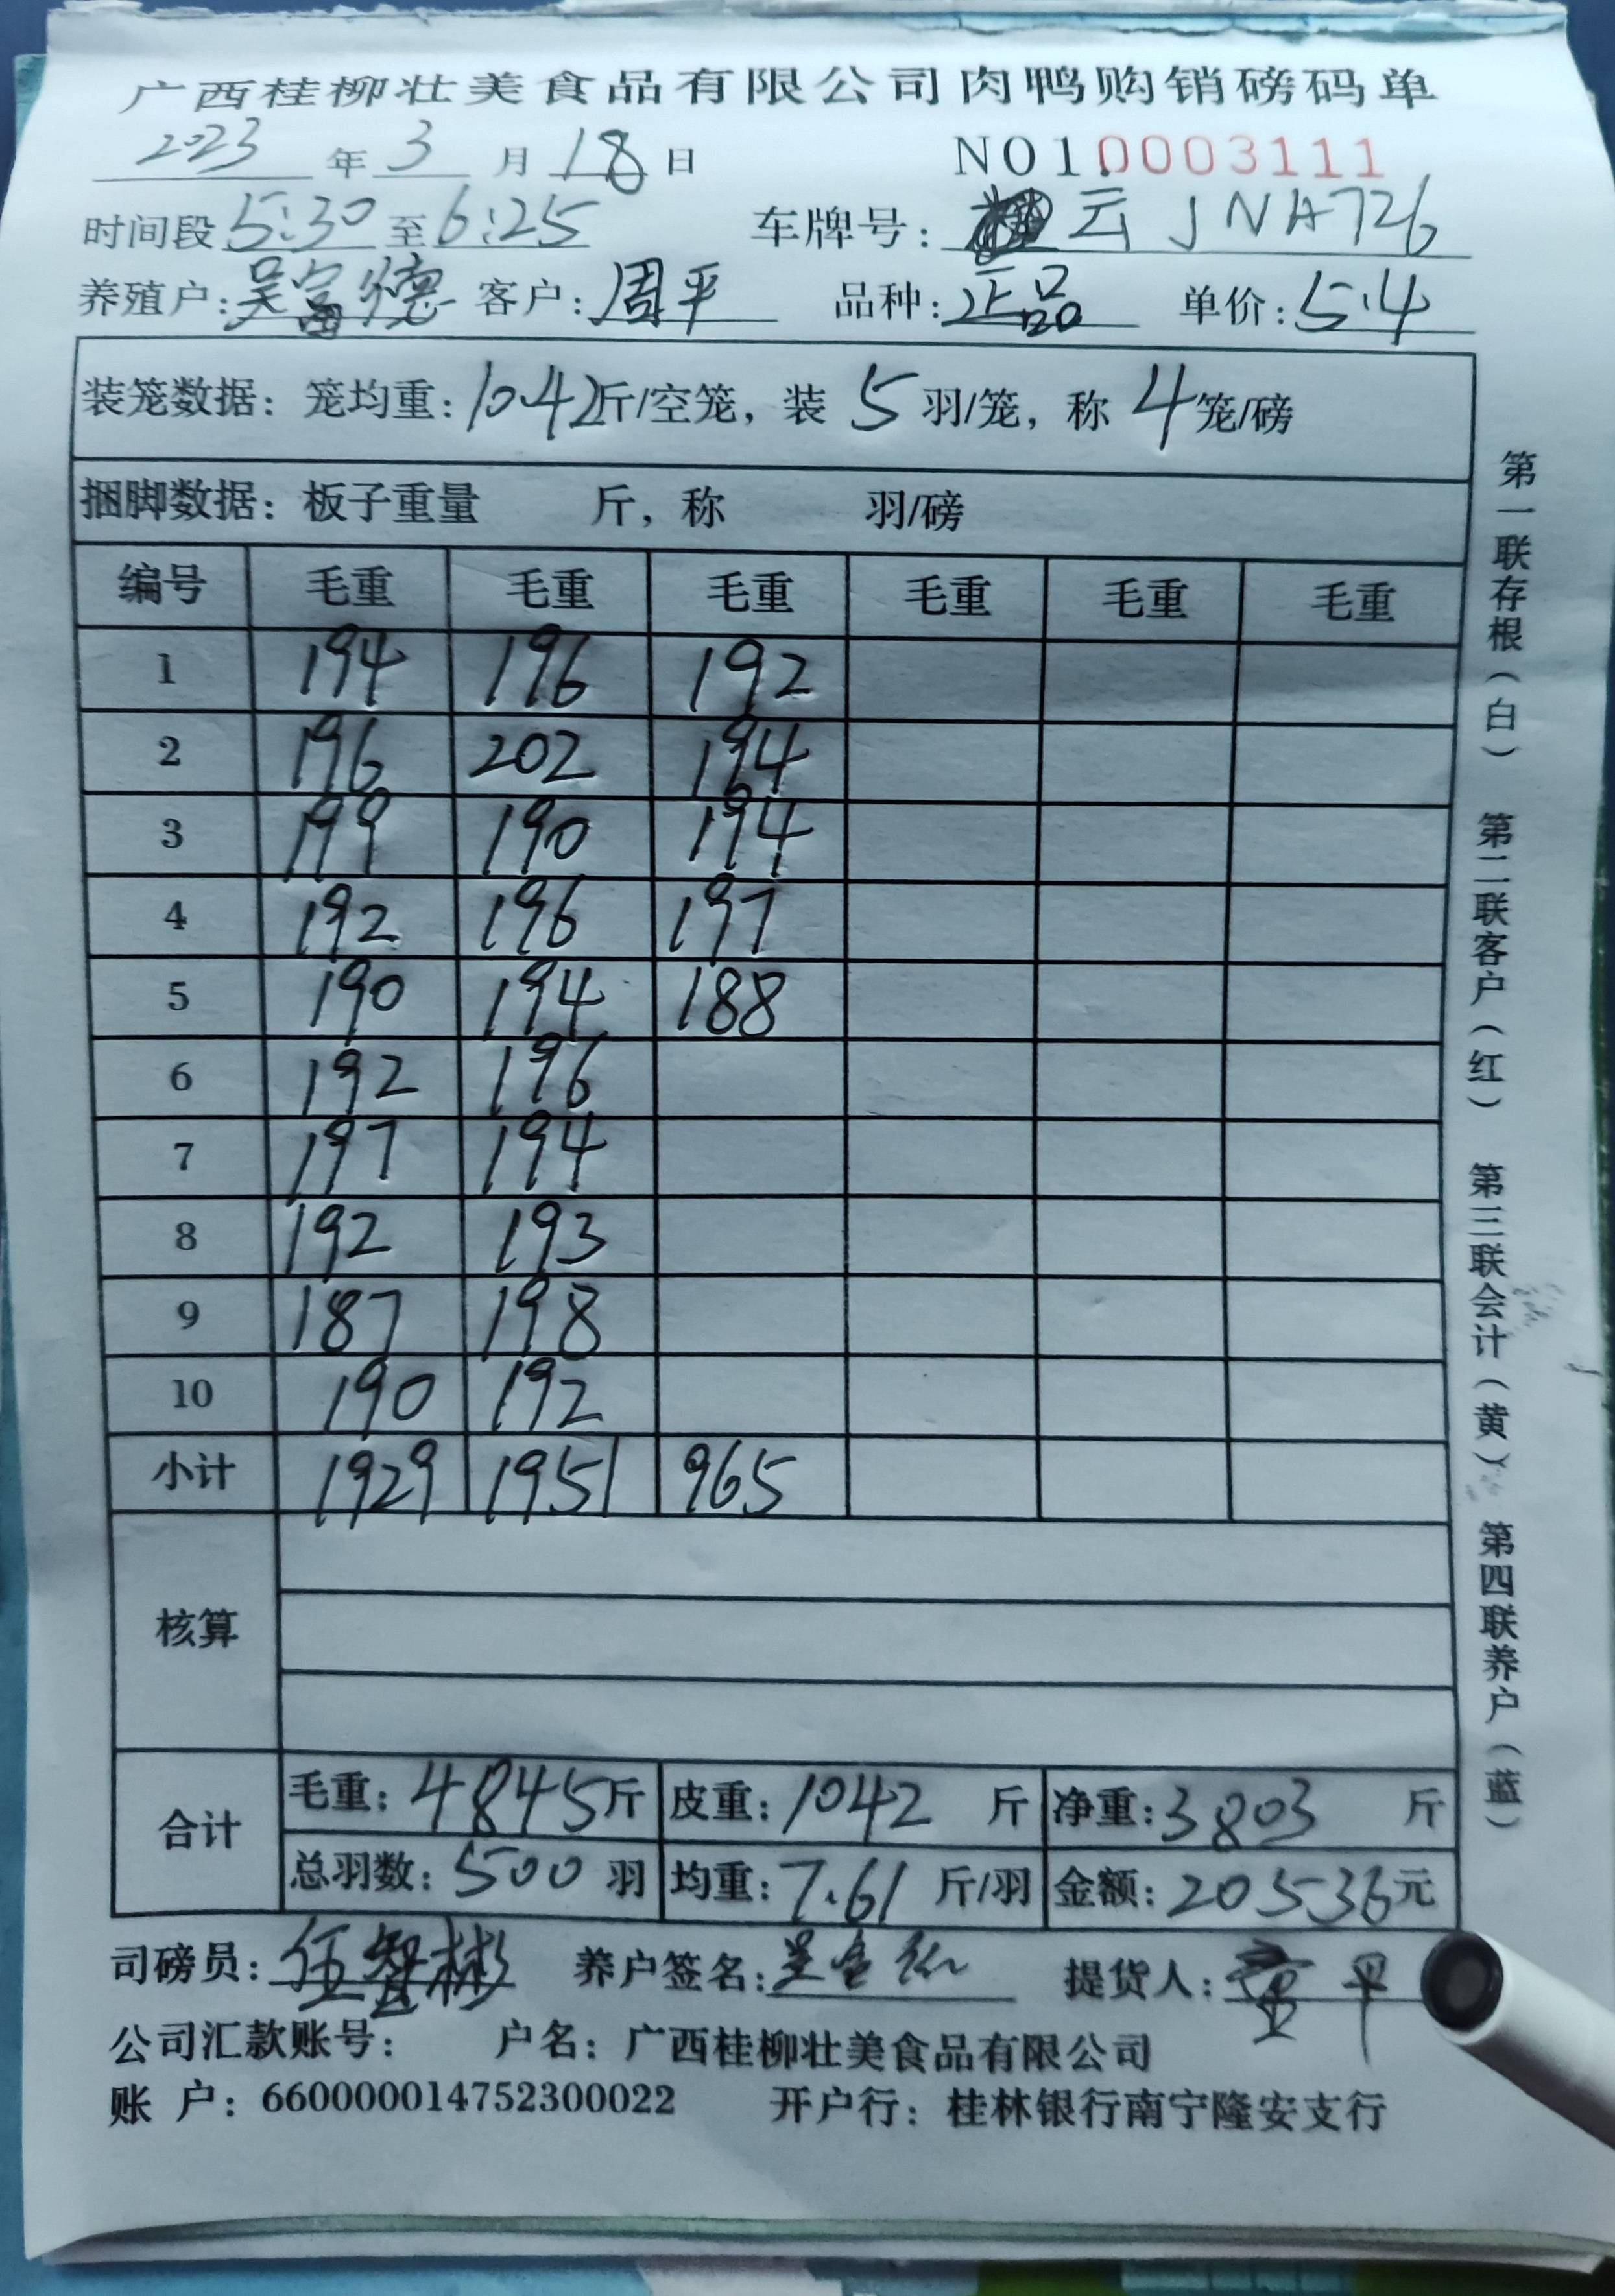 广西桂柳壮美食品有限公司肉鸭购销磅码单
2023 年 3 月 18 日 NO1.0003111
时间段 5:30 至 6:25 车牌号: 云JNA726
养殖户: 吴富德 客户: 周平 品种: 正品 单价: 5.4
装笼数据: 笼均重: 10.42 斤/空笼, 装 5 羽/笼, 称 4 笼/磅
捆脚数据: 板子重量 斤, 称 羽/磅
编号 毛重 毛重 毛重 毛重 毛重 毛重
1 194 196 192
2 196 202 194
3 199 190 194
4 192 196 197
5 190 194 188
6 192 196
7 197 194
8 192 193
9 187 198
10 190 192
小计 1929 1951 965
核算
合计
毛重: 4845 斤 皮重: 1042 斤 净重: 3803 斤
总羽数: 500 羽 均重: 7.61 斤/羽 金额: 20536 元
司磅员: 伍智彬 养户签名: 提货人:
公司汇款账号: 户名: 广西桂柳壮美食品有限公司
账 户: 660000014752300022 开户行: 桂林银行南宁隆安支行
第一联存根(白) 第二联客户(红) 第三联会计(黄) 第四联养户(蓝)